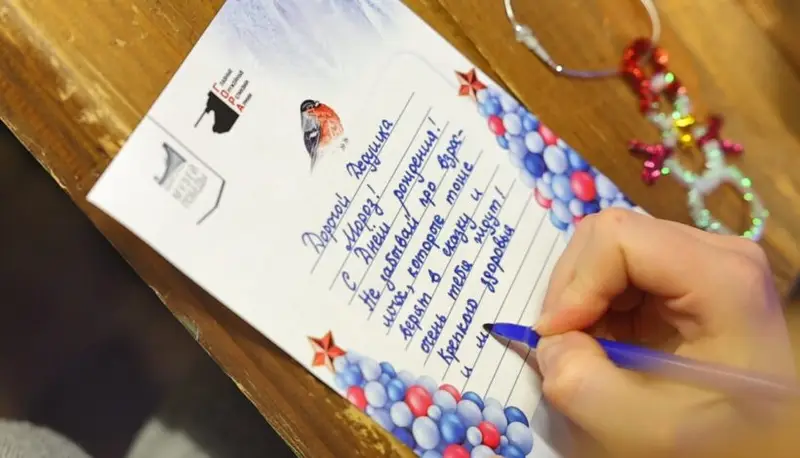 Музей
Победы
Дорогой Дедушка
Мороз!
С Днём рождения!
Не забывай про взрос-
лых, которые тоже
верят в сказку и
очень тебя ждут!
Крепкого здоровья
и м